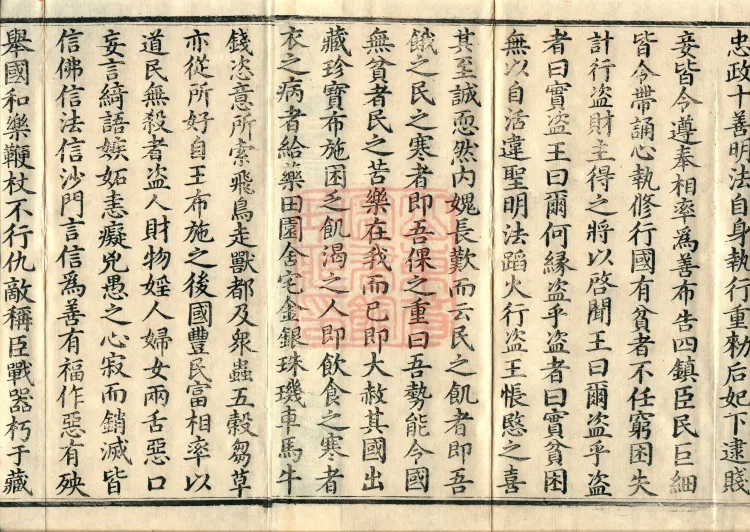 忠政十善明法自身執行重勑后妃下逮賤
妾皆令遵奉相率為善布告四鎮臣民巨細
皆令帶誦心執修行國有貧者不任窮困失
計行盜財主得之將以啓聞王曰爾盜乎盜
者曰實盜王曰爾何緣盜乎盜者曰實貧困
無以自活違聖明法蹈火行盜王悵愍之喜
其至誠恧然內媿長歎而云民之飢者即吾
餓之民之寒者即吾倮之重曰吾勢能令國
無貧者民之苦樂在我而已即大赦其國出
藏珍寶布施困乏飢渴之人即飲食之寒者
衣之病者給藥田園舍宅金銀珠璣車馬牛
錢恣意所索飛鳥走獸都及衆蟲五穀蒭草
亦從所好自王布施之後國豐民富相率以
道民無殺者盜人財物婬人婦女兩舌惡口
妄言綺語嫉妬恚癡兇愚之心寂而銷滅皆
信佛信法信沙門言信為善有福作惡有殃
舉國和樂鞭杖不行仇敵稱臣戰器朽于藏